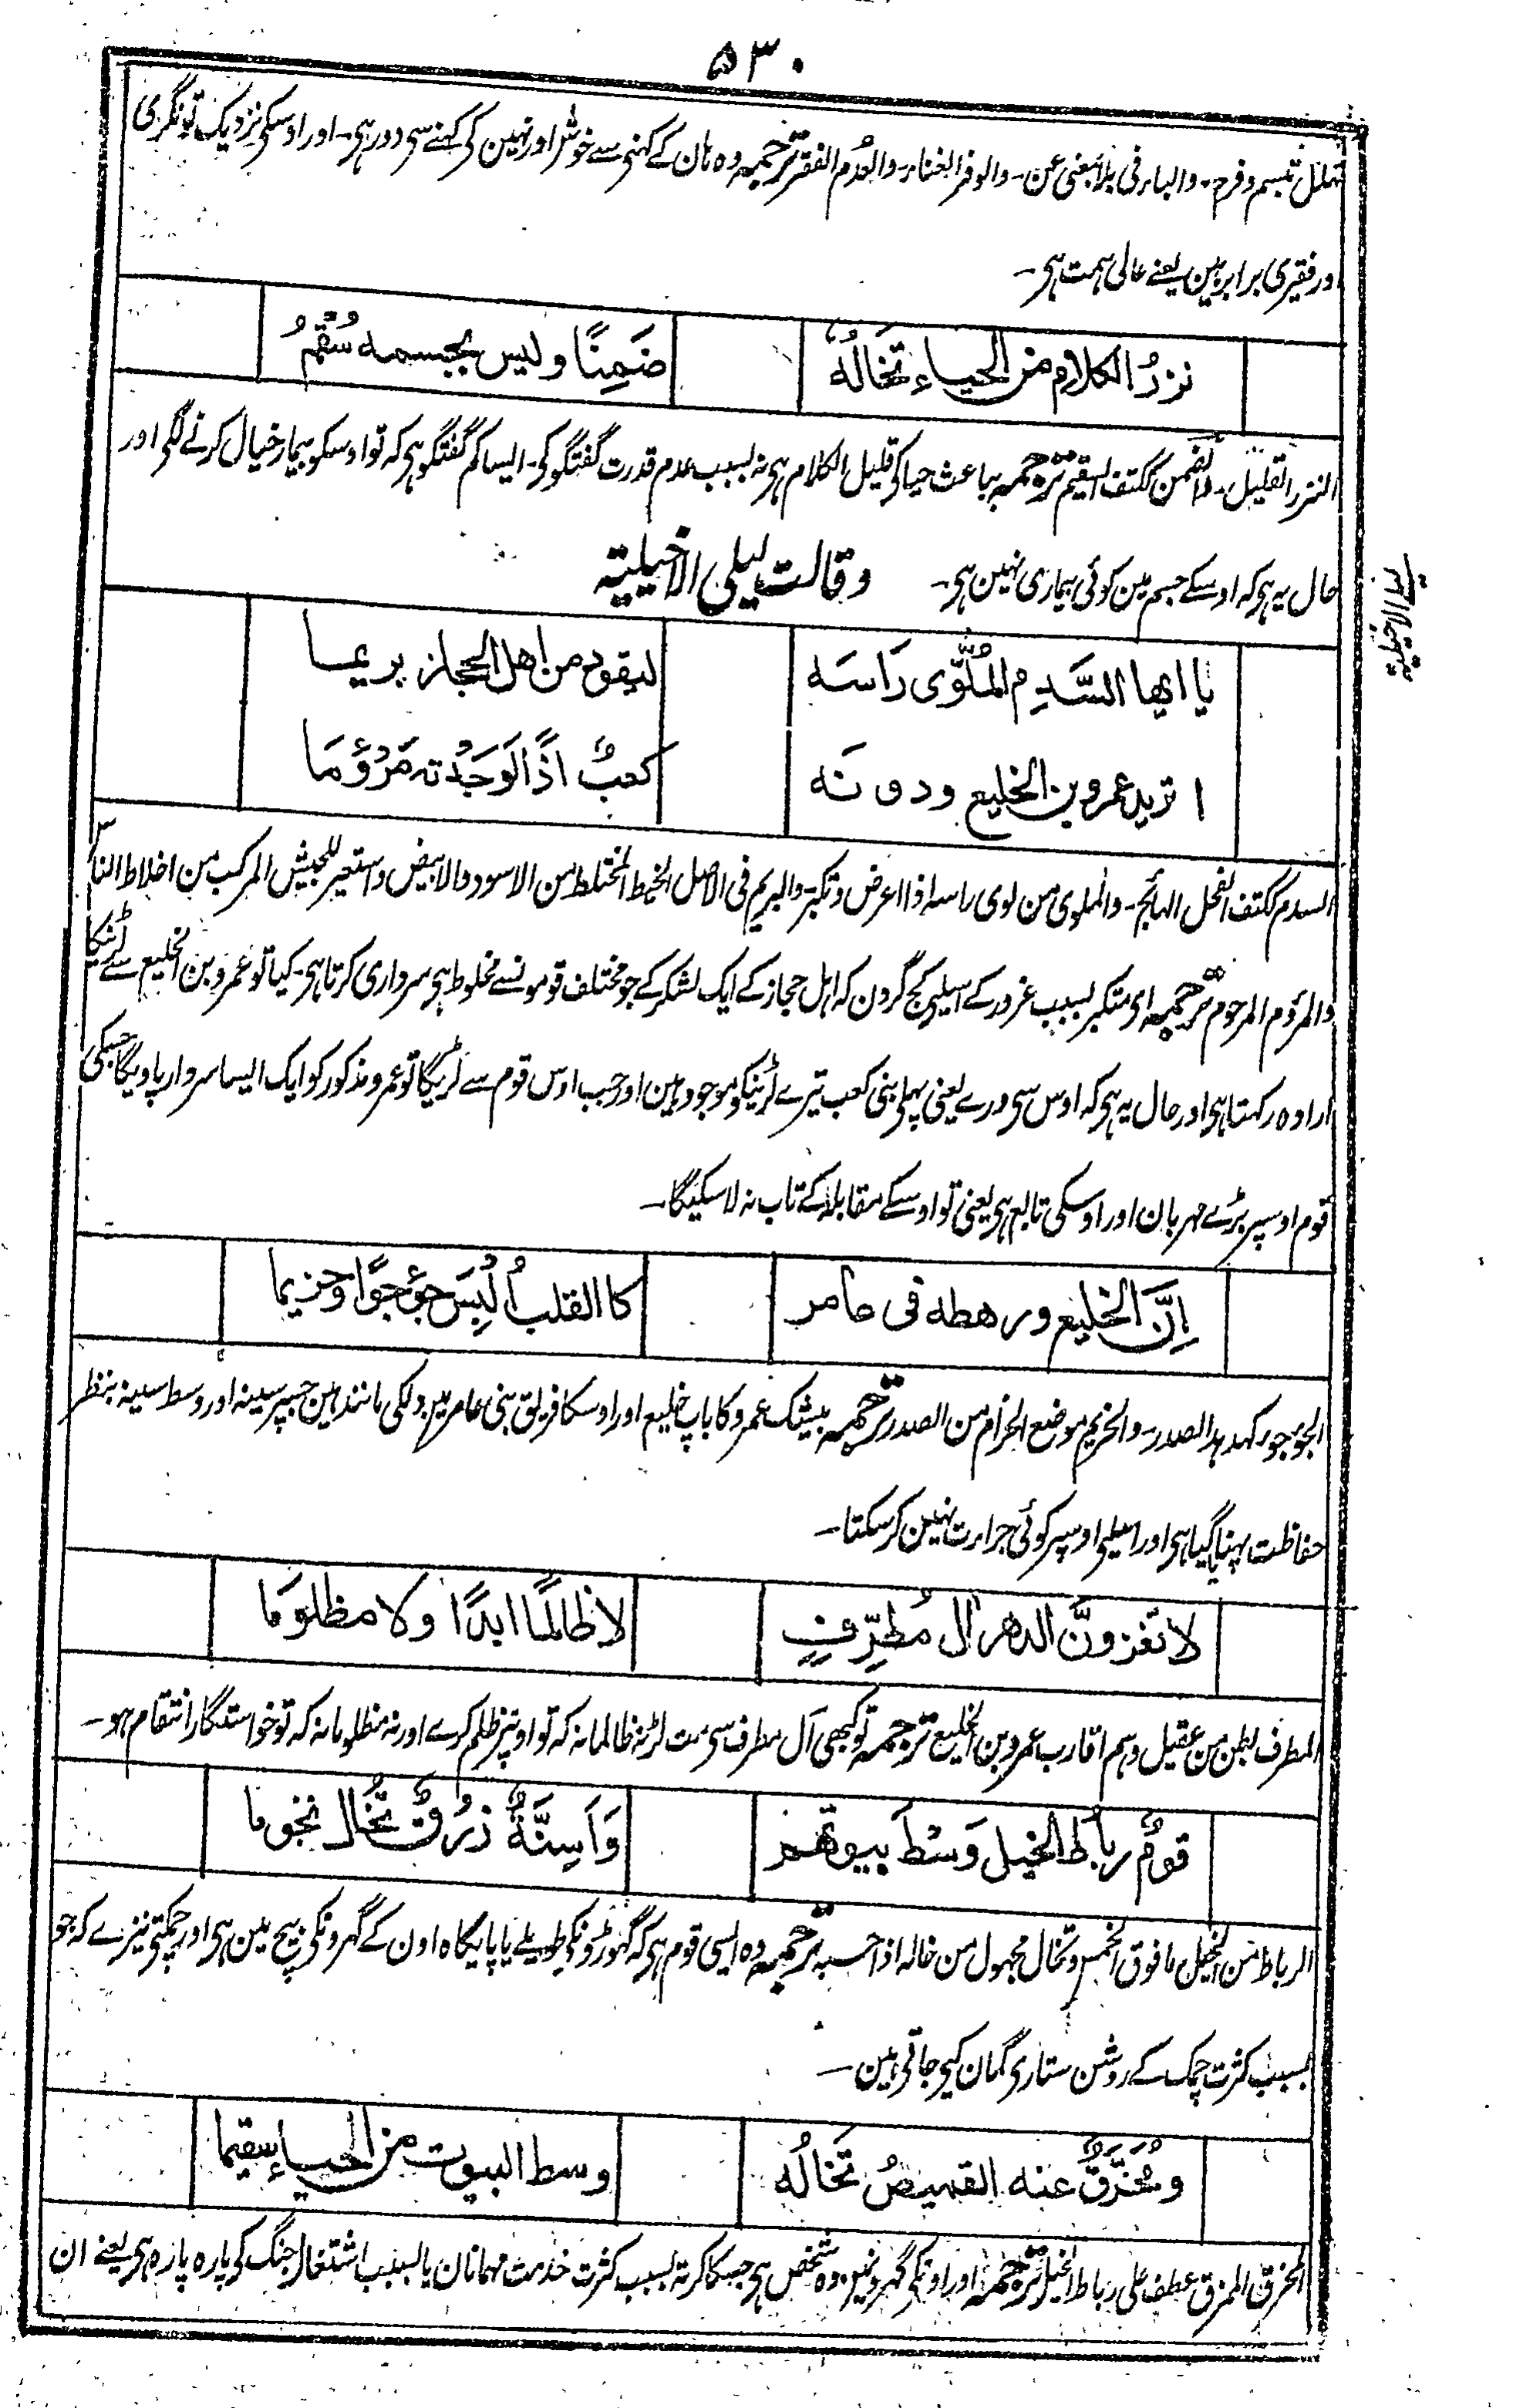 ۵۳۰
تهلل تبسم وفرح۔ والباء فی بلا بمعنی عن۔ والوفر الغناء۔ والعدم الفقر ترجمہ وہ ہان کے کہنی سے خوش اور نہین کی کہنے سی دور ہی۔ اور اوسکی نزدیک تونگری
اور فقیری برابر ہین یعنے عالی ہمت ہی۔
نزرُ الكلام من الحياء تَخالُهُ ضَمِنًا وليس بجسمه سُقْمُ
النزر القلیل۔ والضمن ککتف السقیم ترجمہ بباعث حیا کی قلیل الکلام ہی نہ بسبب عدم قدرت گفتگو کی۔ ایسا کم گفتگو ہی کہ تو اوسکو بیمار خیال کرنے لگی اور
حال یہ ہی کہ اوسکے جسم مین کوئی بیماری نہین ہی۔ وقالت لیلی الاخیلیة
لیلی الاخیلیة
يا ايها السَّدِم المُلَوّى رَاسَه ليقود من اهل الحجاز بريما
اتريد عمرو بن الخليع ودونَه كعبٌ اذًا لَوَجَدْته مَرْؤُمَا
السدم ککتف الفحل الہائج۔ والملوی من لوی راسہ اذا اعرض وتکبر والبریم فی الاصل الخیط المختلط من الاسود والابیض واستعیر للجیش المرکب من اخلاط الناس
والمرؤم المرحوم ترجمہ ای متکبر بسبب غرور کے اسیلی کج گردن کہ اہل حجاز کے ایک لشکر کے جو مختلف قومونسے مخلوط ہی سرداری کرتا ہی۔ کیا تو عمرو بن الخلیع سے لڑنیکا
ارادہ رکہتا ہی اور حال یہ ہی کہ اوس سی ورے یعنی پہلی بنی کعب تیرے لڑنیکو موجود ہین اور جب اوس قوم سے لڑیگا تو عمرو مذکور کو ایک ایسا سردار پاویگا جسکی
قوم اوسپر بڑے مہربان اور اوسکی تابع ہی یعنی تو اوسکے مقابلا کے تاب نہ لا سکیگا۔
اِنَّ الخليع ورهطه فى عامر كالقلب اُلْبِسَ جؤجؤًا وحزيما
الجؤجؤ کہدہد الصدر۔ والحزیم موضع الحزام من الصدر ترجمہ بیشک عمرو کا باپ خلیع اور اوسکا فریق بنی عامر مین دلکی مانند ہین جسپر سینہ اور وسط سینہ بنظر
حفاظت پہنایا گیا ہی اور اسیلی اوسپر کوئی جراءت نہین کر سکتا۔
لا تغزونَّ الدهر اٰل مُطرِّفٍ لا ظالمًا ابدًا ولا مظلوما
المطرف بطن من عقیل وہم اقارب عمرو بن الخلیع ترجمہ تو کبھی آل مطرف سی مت لڑنہ ظالمانہ کہ تو اونپر ظلم کرے اور نہ مظلومانہ کہ تو خواستگار انتقام ہو۔
قومٌ رباطُ الخيل وَسْطَ بيوتهم وَاَسِنَّةٌ زُرْقٌ تُخال نجوما
الرباط من الخیل ما فوق الخمس وتخال مجہول من خالہ اذا حسبہ ترجمہ وہ ایسی قوم ہی کہ گہوڑونکی طویلے یا پایگاہ اون کے گہرونکی بیچ مین ہی اور چمکتی نیزے کہ جو
بسبب کثرت چمک کے روشن ستاری گمان کیی جاتی ہین۔
ومُخَرَّقٌ عنه القميصُ تَخالُه وسط البيوت من الحياء سقيما
المخرق الممزق عطف علی رباط الخیل ترجمہ اور اونکی گہرونمین وہ شخص ہی جسکا کرتہ بسبب کثرت خدمت مہمانان یا بسبب اشتغال جنگ کی پارہ پارہ ہی یعنے ان